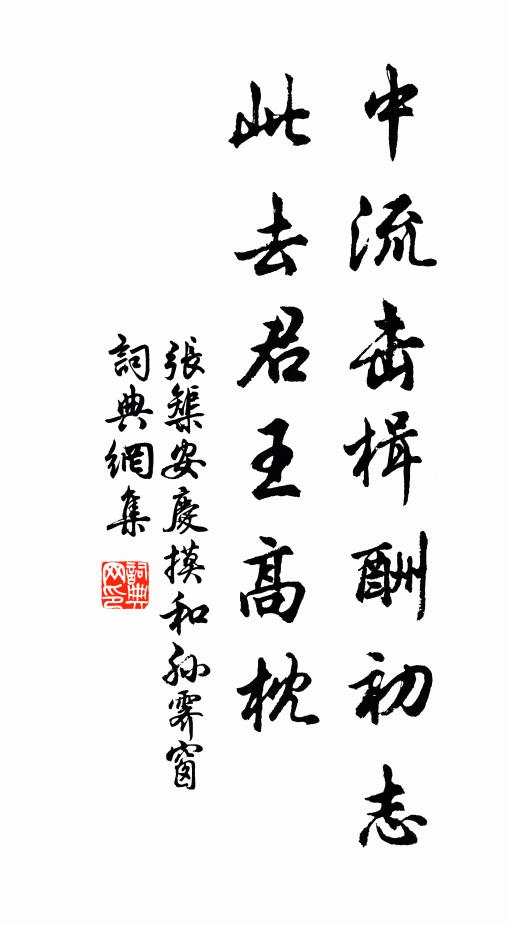 中流击楫酬初志
此去君王高枕
張榘安慶摸和孙霁窗
詞典網集
詞典网印